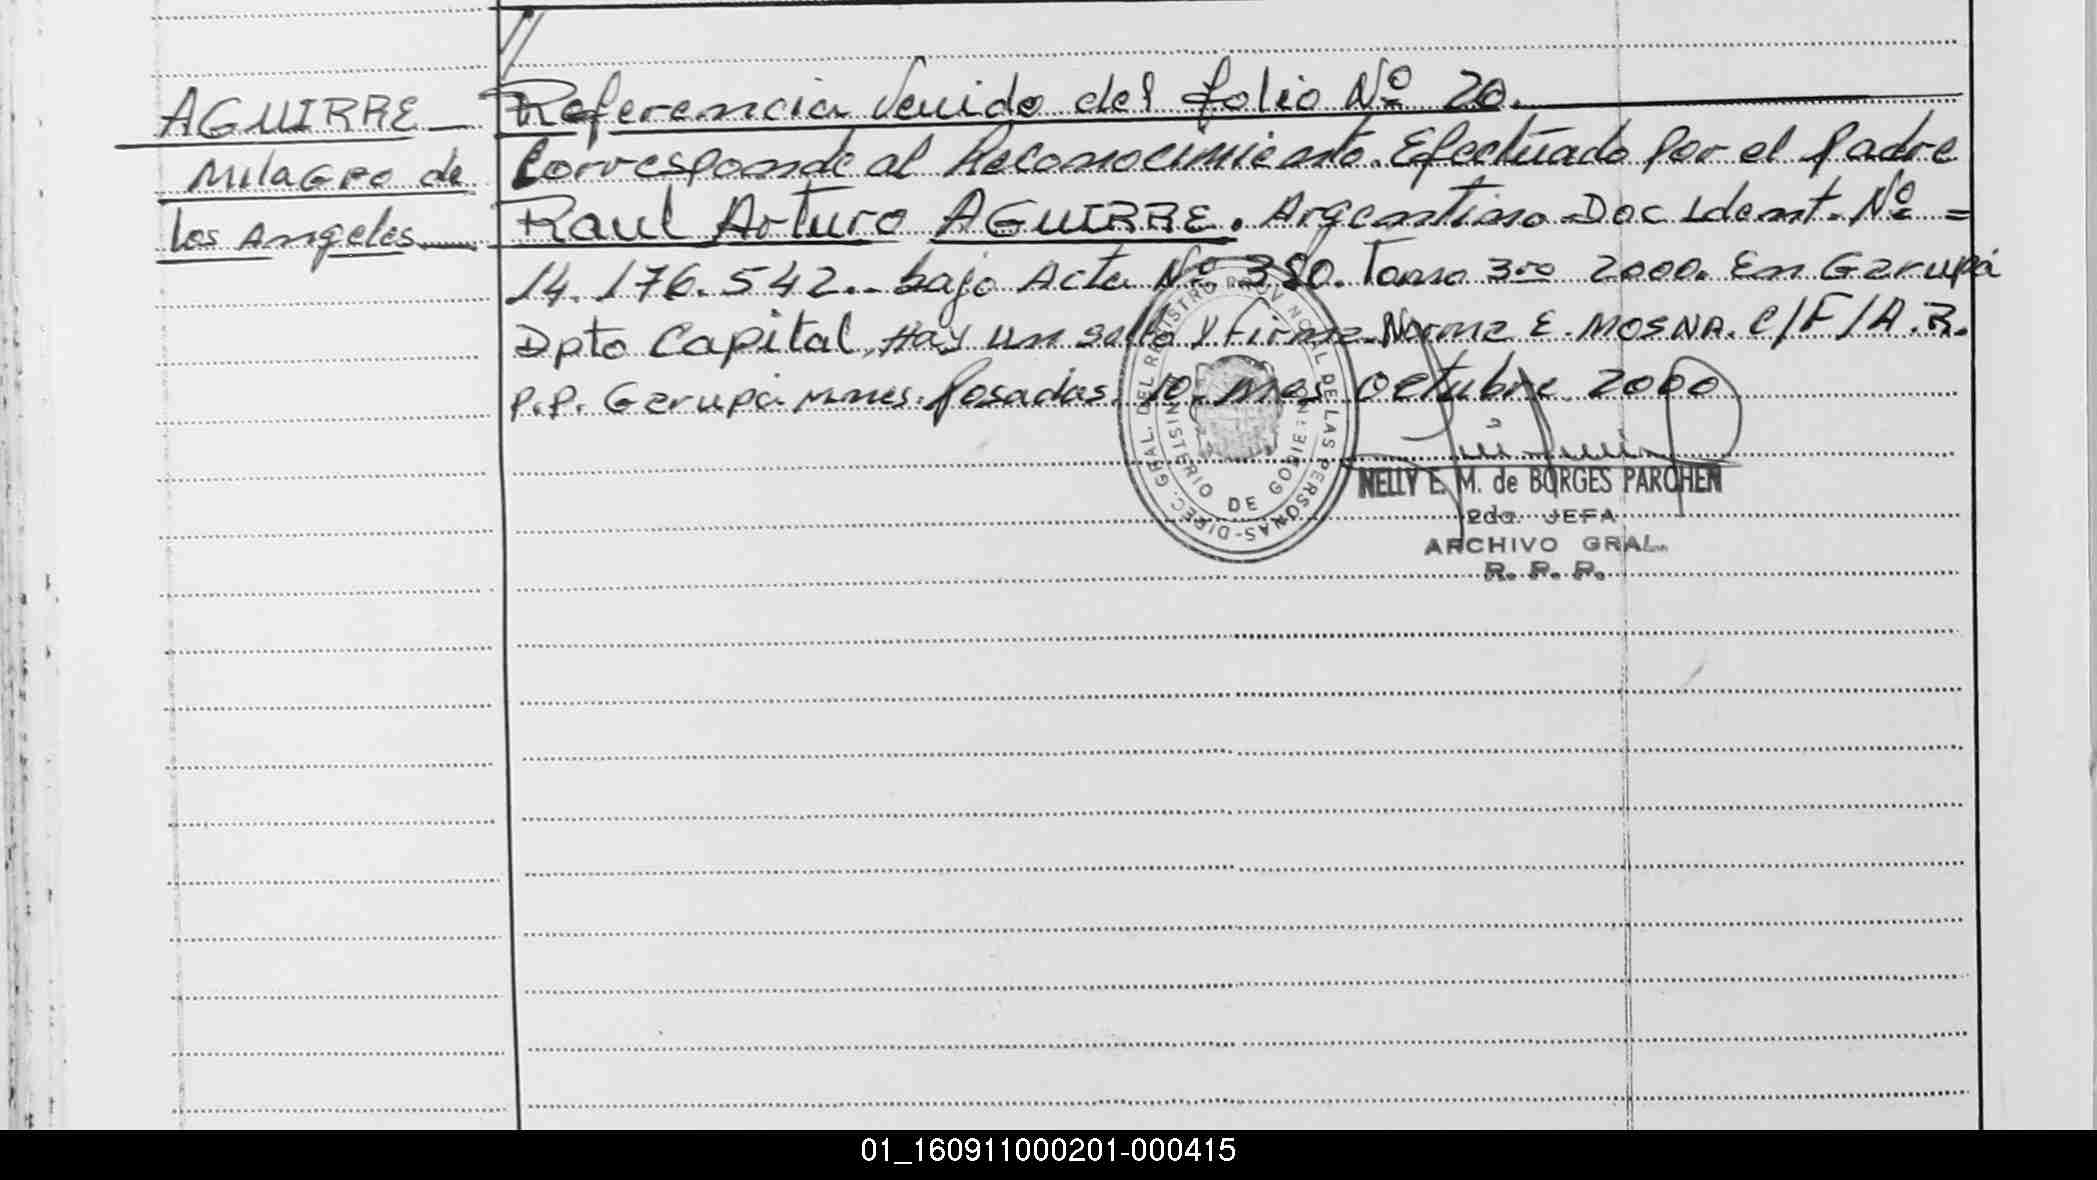 AGUIRRE
Milagro de
los Angeles
Referencia Venido del folio Nº 20.
Corresponde al Reconocimiento. Efectuado Por el Padre
Raul Arturo AGUIRRE. Argentino Doc Ident. Nº =
14.176.542.. bajo Acta Nº 380. Tomo 3ro 2000. En Garupá
Dpto Capital, Hay un sello y Firma. Norma E. MOSNA. C/F/A.R.
P.P. Garupá Mnes. Posadas, 10. mes Octubre 2000
DIREC. GRAL. DEL REGISTRO PROVINCIAL DE LAS PERSONAS-
MINISTERIO DE GOBIERNO
NELLY E. M. de BORGES PARCHEN
2da. JEFA
ARCHIVO GRAL.
R. P. P.
01_160911000201-000415